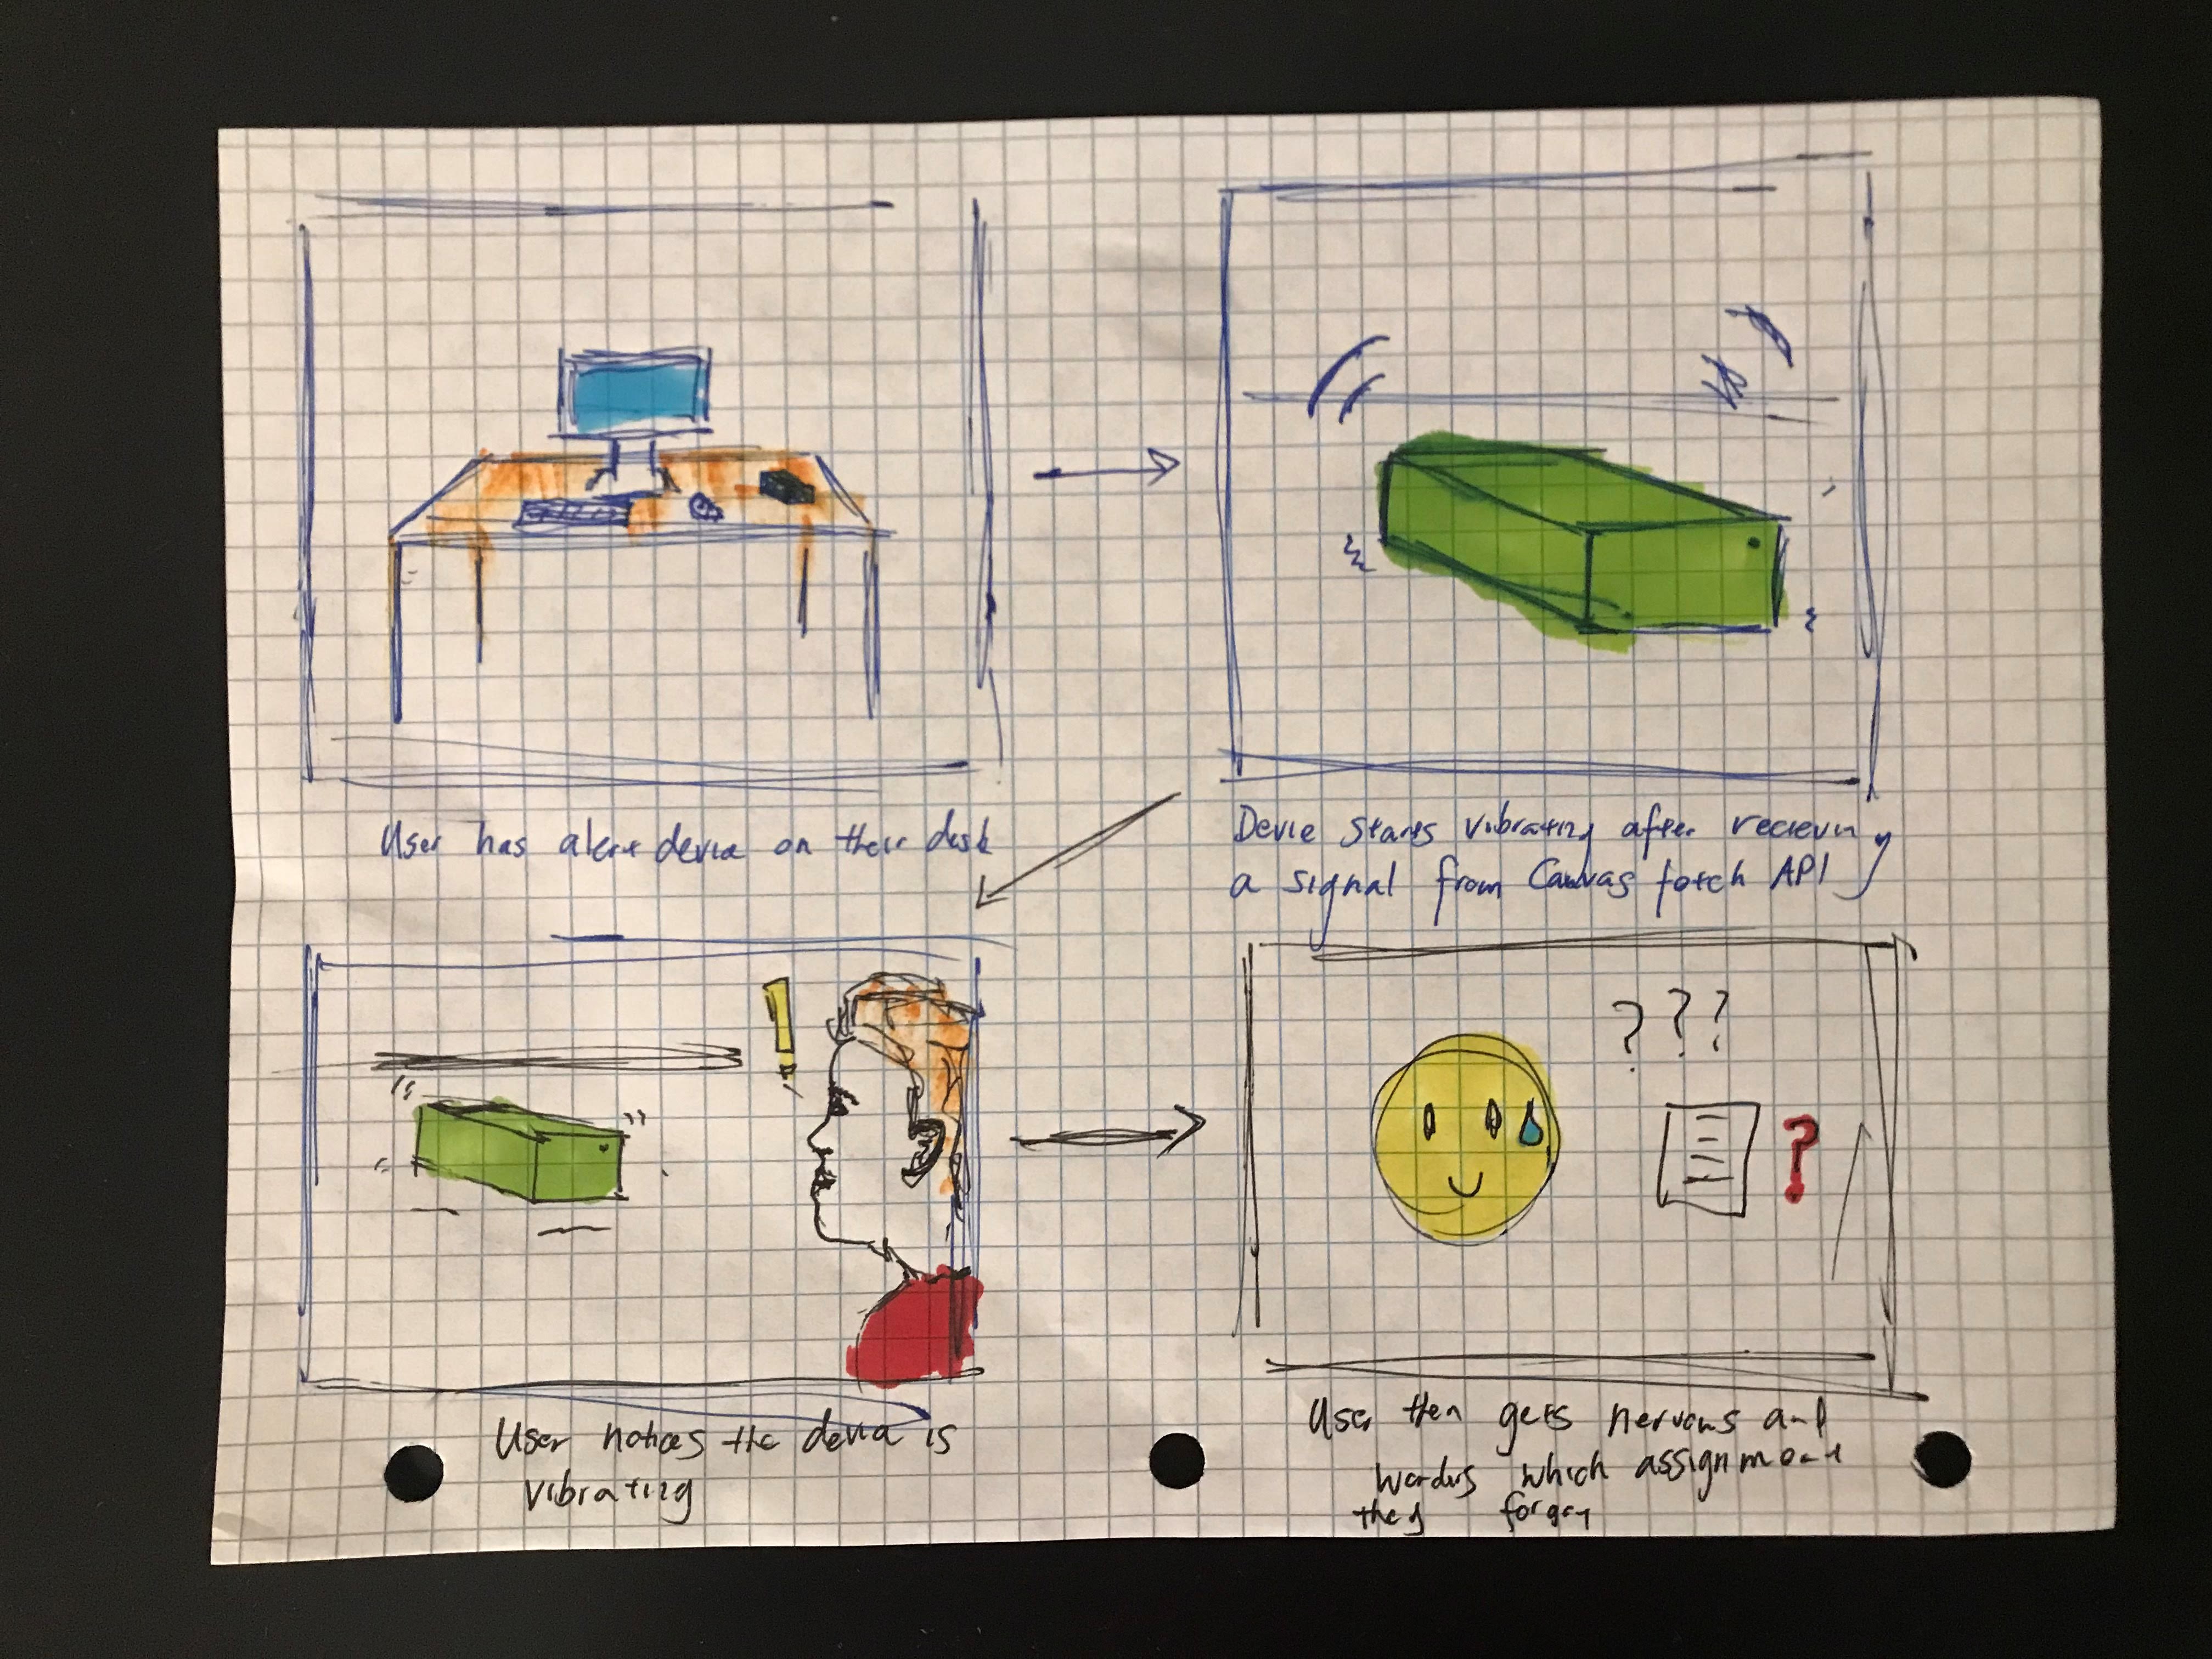 User has alert device on their desk
Device starts vibrating after recieving
a signal from Canvas fetch API
User notices the device is
vibrating
? ? ?
?
User then gets nervous and
wonders which assignment
they forgot